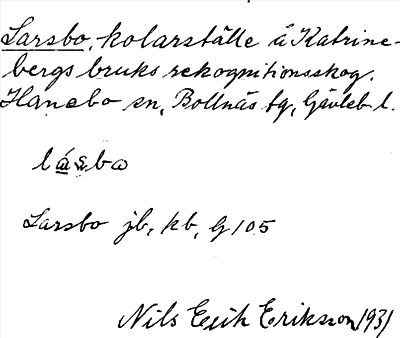 Larsbo, kolarställe å Katrine-
bergs bruks rekognitionsskog.
Hanebo sn, Bollnäs tg, Gävleb l.
lásba
Larsbo jb, kb, G 105
Nils Erik Eriksson 1931